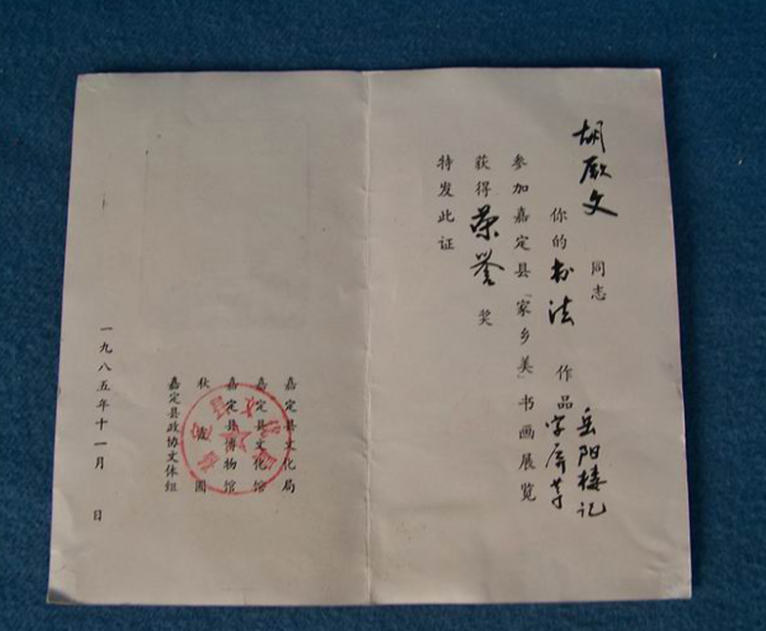 胡厥文 同志
你的书法 作品 岳阳楼记
字屏等
参加嘉定县“家乡美”书画展览
获得荣誉 奖
特发此证
嘉定县文化局
嘉定县文化馆
嘉定县博物馆
秋霞圃
嘉定县政协文体组
一九八五年十一月 日